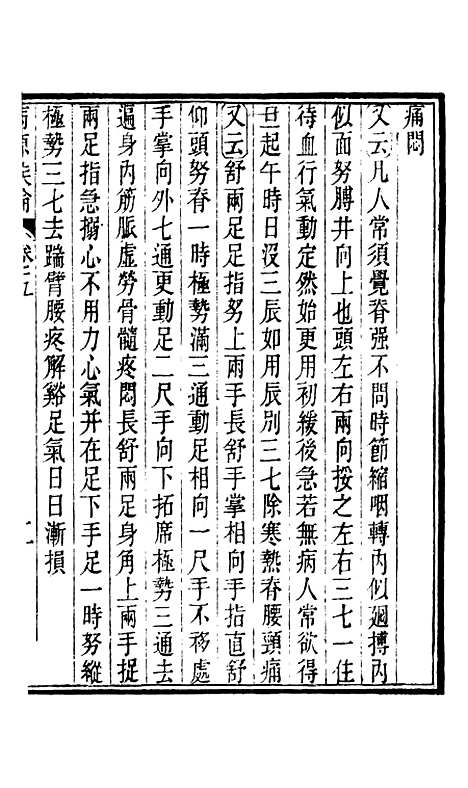 痛悶
又云凡人常須覺脊强不問時節縮咽轉內似廻搏內
似而努膊井向上也頭左右兩向挼之左右三七一住
待血行氣動定然始更用初緩後急若無病人常欲得
旦起午時日沒三辰如用辰別三七除寒熱脊腰頸痛
又云舒兩足足指努上兩手長舒手掌相向手指直舒
仰頭努脊一時極勢滿三通動足相向一尺手不移處
手掌向外七通更動足二尺手向下拓席極勢三通去
遍身內筋脈虛勞骨髓疼悶長舒兩足身角上兩手捉
兩足指急搦心不用力心氣并在足下手足一時努縱
極勢三七去踹臂腰疼解谿足氣日日漸損
病源候論 卷二五